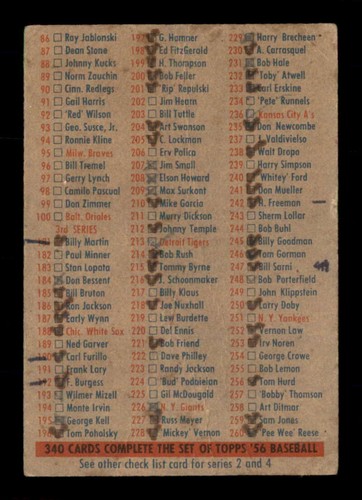 86 Ray Jablonski
87 Dean Stone
88 Johnny Kucks
89 Norm Zauchin
90 Cinn. Redlegs
91 Gail Harris
92 'Red' Wilson
93 Geo. Susce, Jr.
94 Ronnie Kline
95 Milw. Braves
96 Bill Tremel
97 Jerry Lynch
98 Camilo Pascual
99 Don Zimmer
100 Balt. Orioles
3rd SERIES
Billy Martin
182 Paul Minner
183 Stan Lopata
184 Don Bessent
185 Bill Bruton
186 Ron Jackson
187 Early Wynn
188 Chic. White Sox
189 Ned Garver
190 Carl Furillo
191 Frank Lary
192 F. Burgess
193 Wilmer Mizell
194 Monte Irvin
195 George Kell
196 Tom Poholsky
197 G. Hamner
198 Ed FitzGerald
199 H. Thompson
200 Bob Feller
201 'Rip' Repulski
202 Jim Hearn
203 Bill Tuttle
204 Art Swanson
205 C. Lockman
206 Erv Palica
207 Jim Small
208 Elson Howard
209 Max Surkont
210 Mike Garcia
211 Murry Dickson
212 Johnny Temple
213 Detroit Tigers
214 Bob Rush
215 Tommy Byrne
216 J. Schoonmaker
217 Billy Klaus
218 Joe Nuxhall
219 Lew Burdette
220 Del Ennis
221 Bob Friend
222 Dave Philley
223 Randy Jackson
224 'Bud' Podbielan
225 Gil McDougald
226 N. Y. Giants
227 Russ Meyer
228 'Mickey' Vernon
229 Harry Brecheen
230 A. Carrasquel
231 Bob Hale
232 'Toby' Atwell
233 Carl Erskine
234 'Pete' Runnels
235 Kansas City A's
236 Don Newcombe
237 J. Valdivielso
238 Walt Dropo
239 Harry Simpson
240 Whitey' Ford
241 Don Mueller
242 H. Freeman
243 Sherm Lollar
244 Bob Buhl
245 Billy Goodman
246 Tom Gorman
247 Bill Sarni
248 Bob Porterfield
249 John Klippstein
250 Larry Doby
251 N. Y. Yankees
252 Vernon Law
253 Irv Noren
254 George Crowe
255 Bob Lemon
256 Tom Hurd
257 'Bobby' Thomson
258 Art Ditmar
259 Sam Jones
260 'Pee Wee' Reese
340 CARDS COMPLETE THE SET OF TOPPS '56 BASEBALL
See other check list card for series 2 and 4